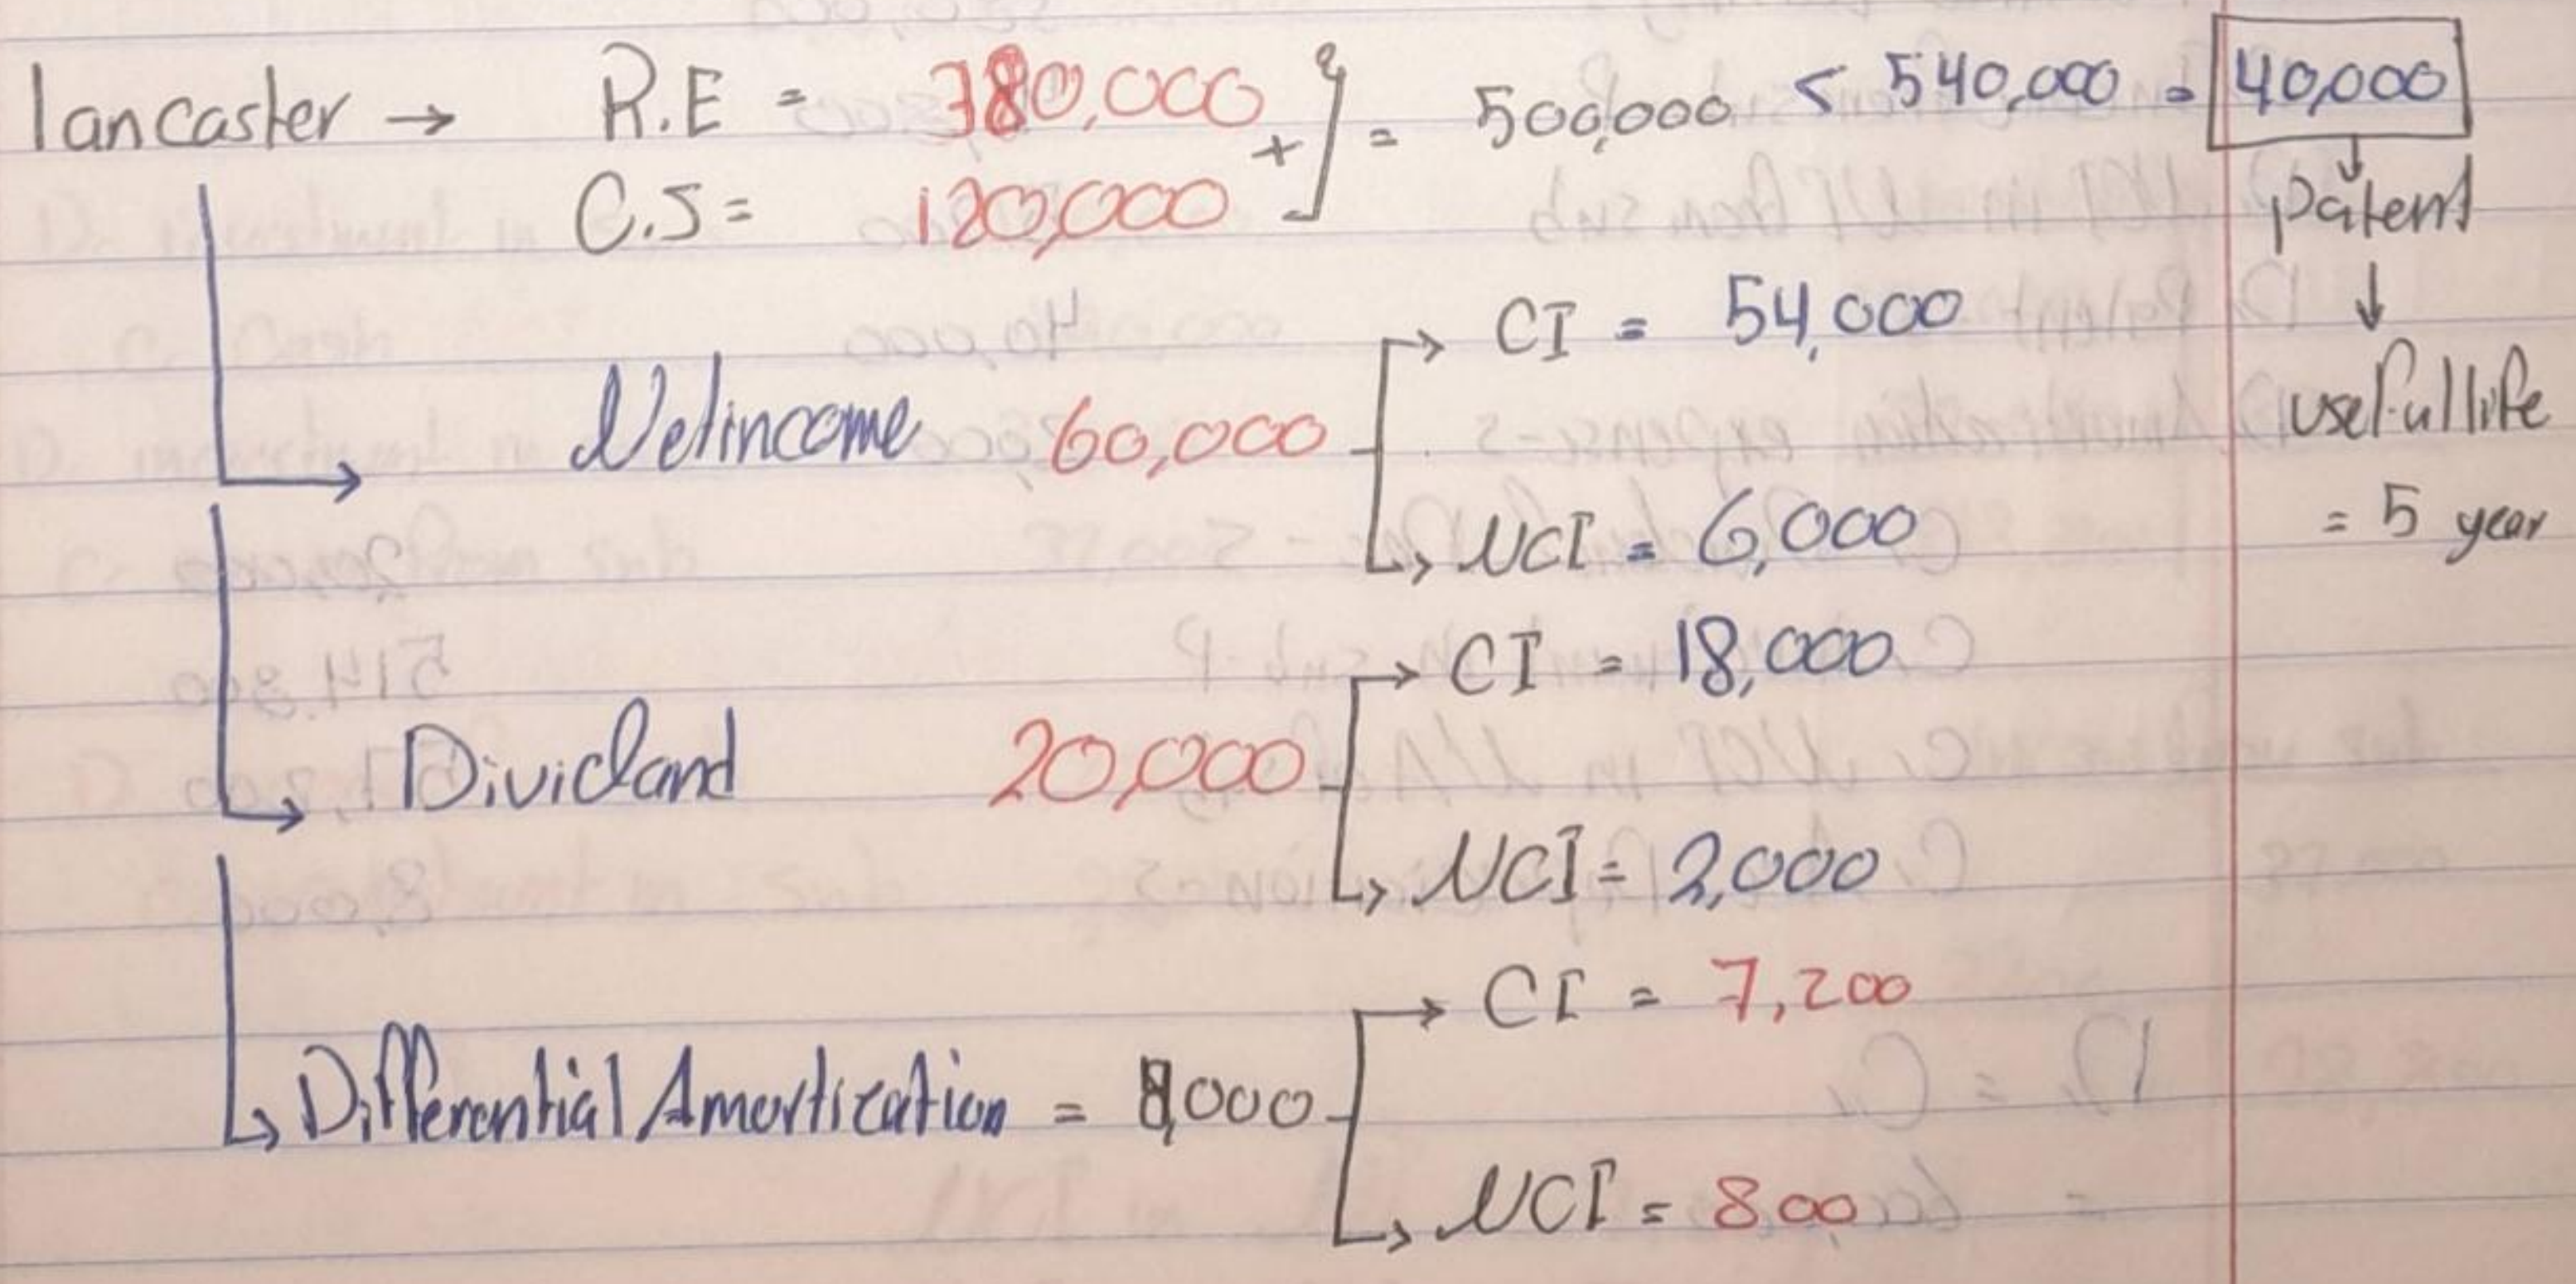 lancaster → R.E = 380,000
C.S = 120,000
+ } = 500,000 < 540,000 = 40,000
patent
usefullife
= 5 year
Netincome 60,000
CI = 54,000
NCI = 6,000
Dividand 20,000
CI = 18,000
NCI = 2,000
Differential Amortization = 8,000
CI = 7,200
NCI = 800